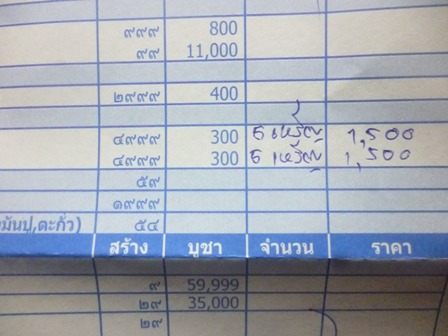 ๙๙๙ 800
๙๙ 11,000
๒๙๙๙ 400
๔๙๙๙ 300 5 เหรียญ 1,500
๔๙๙๙ 300 5 เหรียญ 1,500
๕๙
๑๙๙๙
มันปู,ตะกั่ว) ๕๔
สร้าง บูชา จำนวน ราคา
๙ 59,999
๒๙ 35,000
๒๙